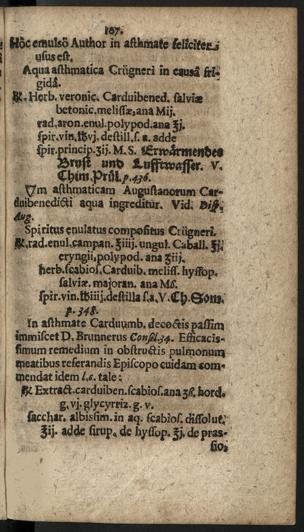 107.
Hôc emulsô Author in asthmate feliciter
usus est.
Aqua asthmatica Crügneri in causâ fri-
gidâ.
℞. Herb. veronic. Carduibened. salviæ
betonic. melissæ, ana Mij.
rad. aron. enul. polypod. ana ℥j.
spir. vin. ℔vj. destill. s. a. adde
spir. princip. ℥ij. M. S. Erwärmendes
Brust und Lufftwasser. V.
Chim. Prül. p. 436.
Vm asthmaticam Augustanorum Car-
duibenedicti aqua ingreditur. Vid. Disp.
Aug.
Spiritus enulatus compositus Crügneri.
℞. rad. enul. campan. ℥iiij. ungul. Caball. ℥j.
eryngii, polypod. ana ℥iij.
herb. scabios. Carduib. meliss. hyssop.
salviæ. majoran. ana Mß.
spir. vin. ℔iiij. destilla s. a. V. Ch. Som.
p. 348.
In asthmate Carduumb. decoctis passim
immiscet D. Brunnerus Consil. 34. Efficacis-
simum remedium in obstructis pulmonum
meatibus referandis Episcopo cuidam com-
mendat idem l. c. tale:
℞ Extract. carduiben. scabios. ana ʒß. hord.
g. vj. glycyrriz. g. v.
sacchar. albissim. in aq. scabios. dissolut.
℥ij. adde sirup. de hyssop. ℥j. de pras-
sio,